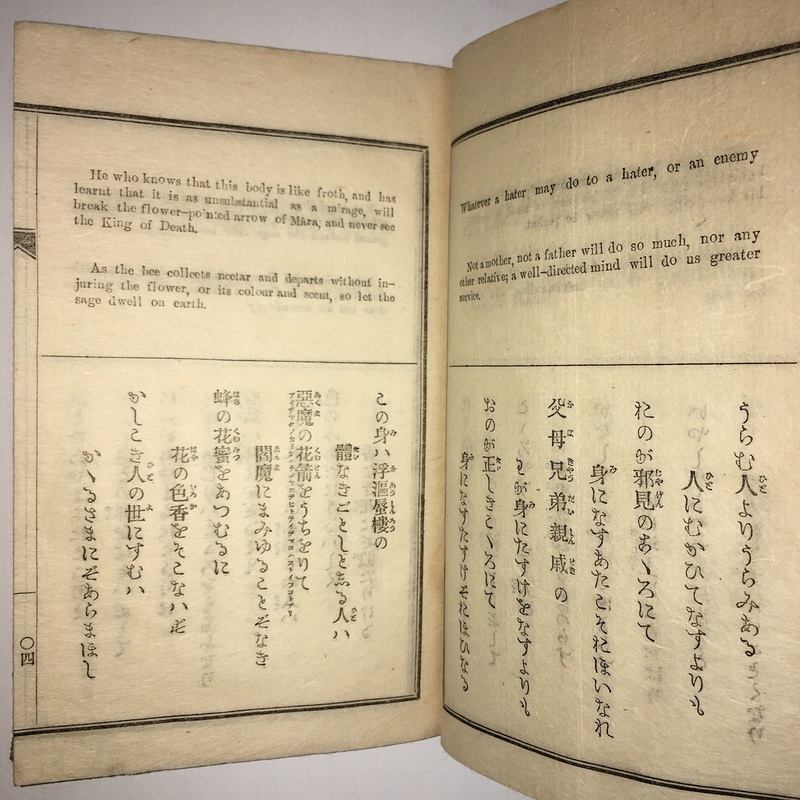 Whatever a hater may do to a hater, or an enemy
Not a mother, not a father will do so much, nor any
other relative; a well-directed mind will do us greater
service.
うらむ人よりうらみある
人にむかひてなすよりも
おのが邪見のこゝろにて
身になすあたこそおほいなれ
父母兄弟親戚の
わが身にたすけをなすよりも
おのが正しきこゝろにて
身になすたすけぞおほひなる
He who knows that this body is like froth, and has
learnt that it is as unsubstantial as a mirage, will
break the flower-pointed arrow of Mâra, and never see
the King of Death.
As the bee collects nectar and departs without in-
juring the flower, or its colour and scent, so let the
sage dwell on earth.
この身ハ浮漚蜃樓の
體なきごとしと志る人ハ
惡魔の花箭をうちをりて
閻魔にまみゆることぞなき
蜂の花蜜をあつむるに
花の色香をそこなハず
かしこき人の世にすむハ
かゝるさまにぞあらまほし
〇四